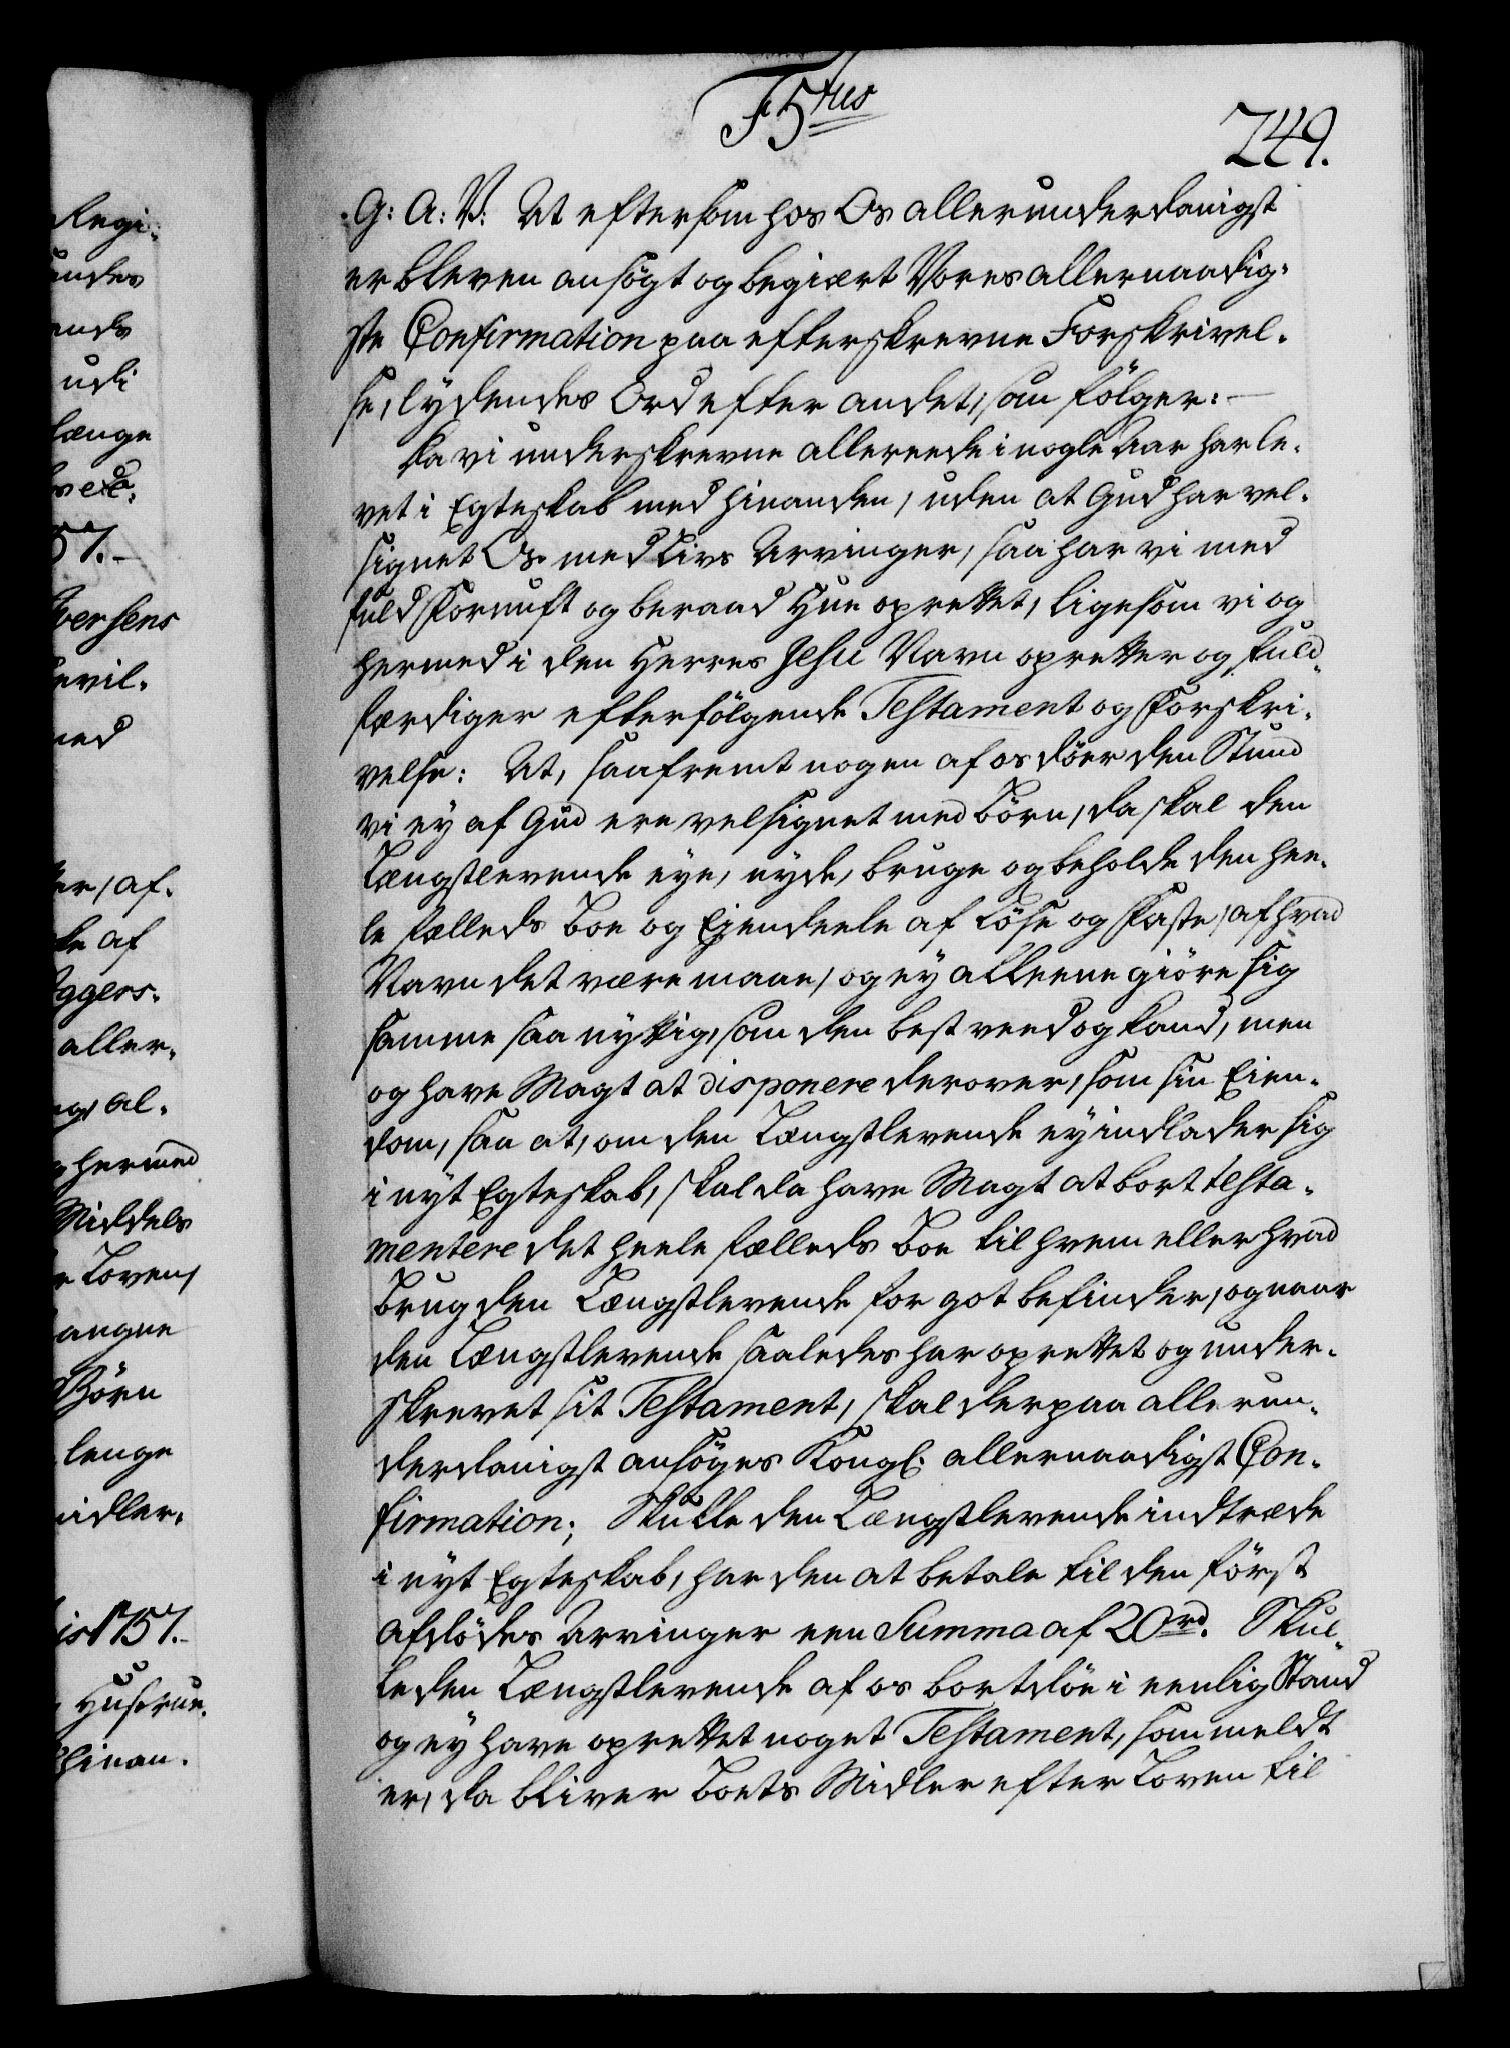 F 5tus
249.
G: A: V: At eftersom hos Os allerunderdanigst
er bleven ansøgt og begiært Vores allernaadig-
ste Confirmation paa efterskrevne Forskrivel-
se, lydendes Ord efter andet, som følger:
Da vi underskrevne allereede i nogle Aar har le-
vet i Egteskab med hinanden, uden at Gud har vel-
signet Os med Livs Arvinger, saa har vi med
fuld Fornuft og beraad Hue oprettet, ligesom vi og
hermed i den Herres Jesu Navn opretter og fuld-
færdiger efterfølgende Testament og Forskri-
velse: At, saafremt nogen af os døer den Stund
vi ey af Gud ere velsignet med Børn, da skal den
Længstlevende eye, nyde, bruge og beholde den hee-
le fælleds Boe og Ejendeele af Løse og Faste, af hvad
Navn det være maae, og ey alleene giøre sig
samme saa nyttig, som den best veed og kand, men
og have Magt at disponere derover, som sin Eien-
dom, saa at, om den Længstlevende ey indlader sig
i nyt Egteskab, skal da have Magt at bort testa-
mentere det heele fælleds Boe til hvem eller hvad
Brug den Længstlevende for got befinder, og naar
den Længstlevende saaledes har oprettet og under-
skrevet sit Testament, skal derpaa allerun-
derdanigst ansøges Kongl. allernaadigst Con-
firmation; Skulle den Længstlevende indtræde
i nyt Egteskab, har den at betale til den først
afdødes Arvinger een Summa af 20 rd. Skul-
le den Længstlevende af os bortdøe i eenlig Stand
og ey have oprettet noget Testament, som meldt
er, da bliver Boets Midler efter Loven til